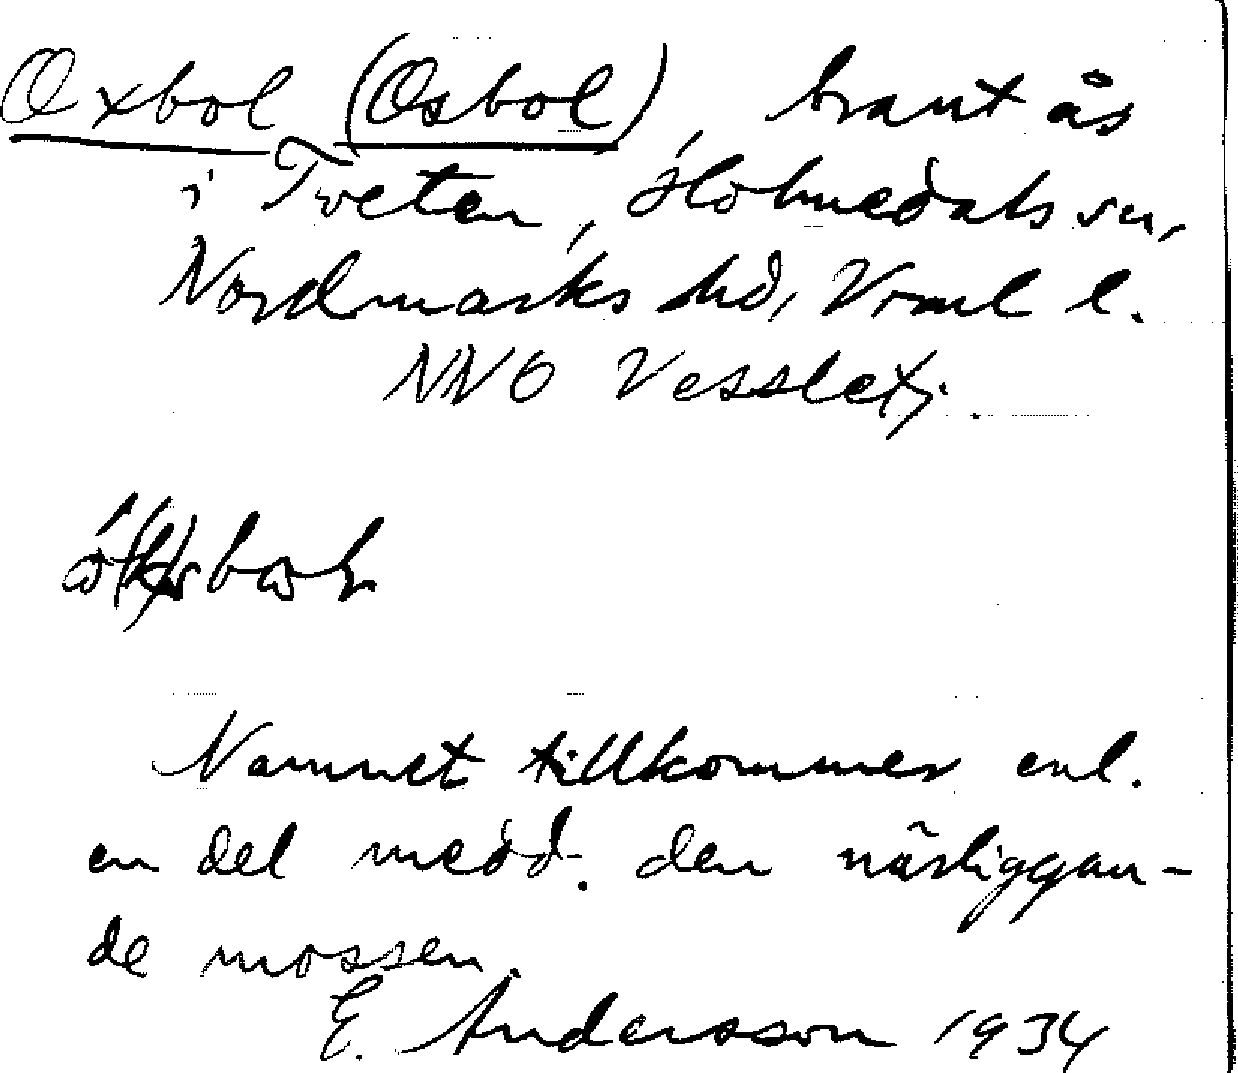 Oxbol (Osbol), brant ås
i Tveten, Holmedals sn,
Nordmarks hd, Vrml l.
NNO Vessletj.
Namnet tillkommer enl.
en del medd. den närliggan-
de mossen.
E. Andersson 1934